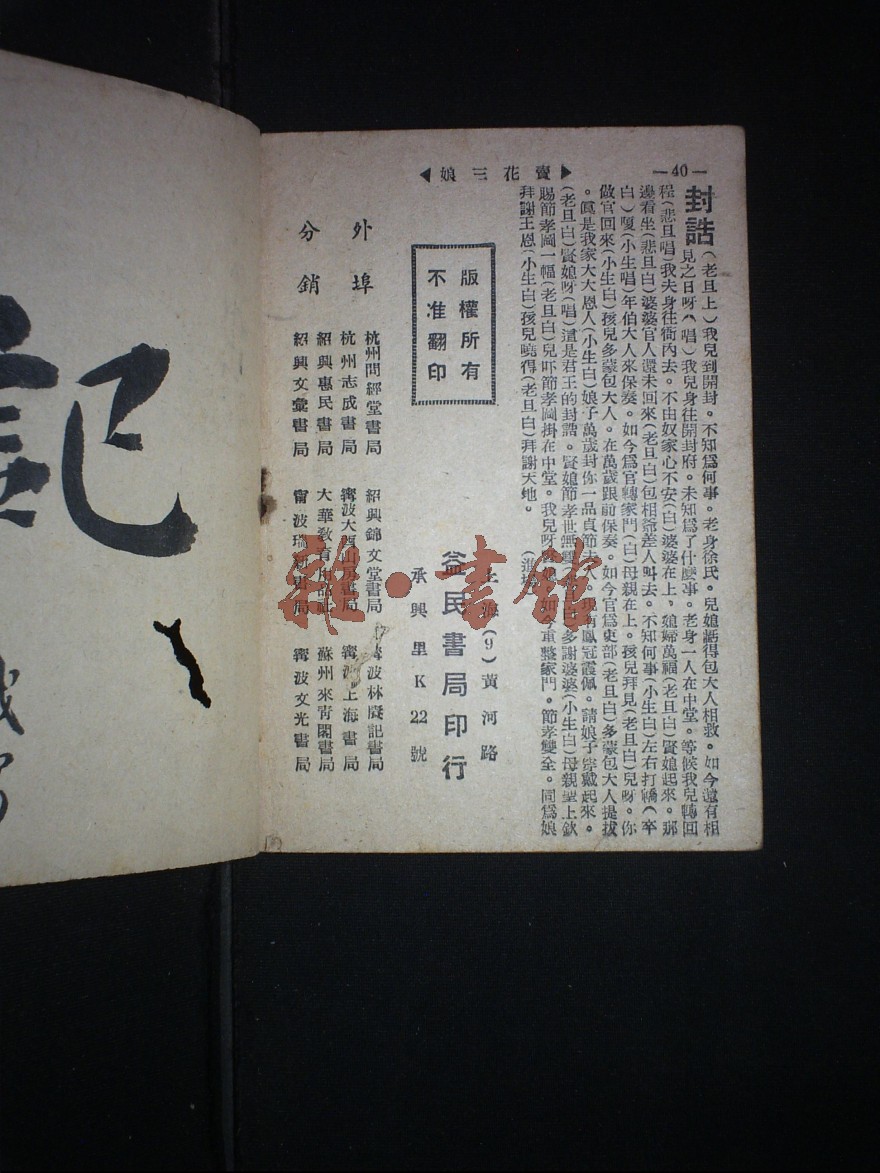 —40—
▶賣花三娘◀
封誥
(老旦上)我兒到開封。不知爲何事。老身徐氏。兒媳話得包大人相救。如今還有相
見之日呀(唱)我兒身往開封府。未知爲了什麽事。老身一人在中堂。等候我兒轉回
程(悲旦唱)我夫身往衙內去。不由奴家心不安(白)婆婆在上。媳婦萬福(老旦白)賢媳起來。那
邊看坐(悲旦白)婆婆官人還未回來(老旦白)包相爺差人叫去。不知何事(小生白)左右打轎(卒
白)嗄(小生唱)年伯大人來保奏。如今爲官轉家門(白)母親在上。孩兒拜見(老旦白)兒呀。你
做官回來(小生白)孩兒多蒙包大人。在萬歲跟前保奏。如今官爲吏部(老旦白)多蒙包大人提拔
。眞是我家大大恩人(小生白)娘子萬歲封你一品貞節夫人。鳳冠霞佩。請娘子穿戴起來。
(老旦白)賢媳呀(唱)這是君王的封誥。賢媳節孝世無雙。多謝婆婆(小生白)母親聖上欽
賜節孝匾一幅(老旦白)兒吓節孝匾掛在中堂。我兒呀。如今重整家門。節孝雙全。同爲娘
拜謝王恩(小生白)孩兒曉得(老旦白)拜謝天地。
版權所有
不准翻印
上海(9)黃河路
益民書局印行
承興里K22號
外埠
分銷
杭州問經堂書局 紹興錦文堂書局 寧波林賡記書局
杭州志成書局 寧波大酉山房書局 寧波上海書局
紹興惠民書局 大華教育用品社 蘇州來青閣書局
紹興文彙書局 甯波瑞新書局 寧波文光書局
記
雜·書館